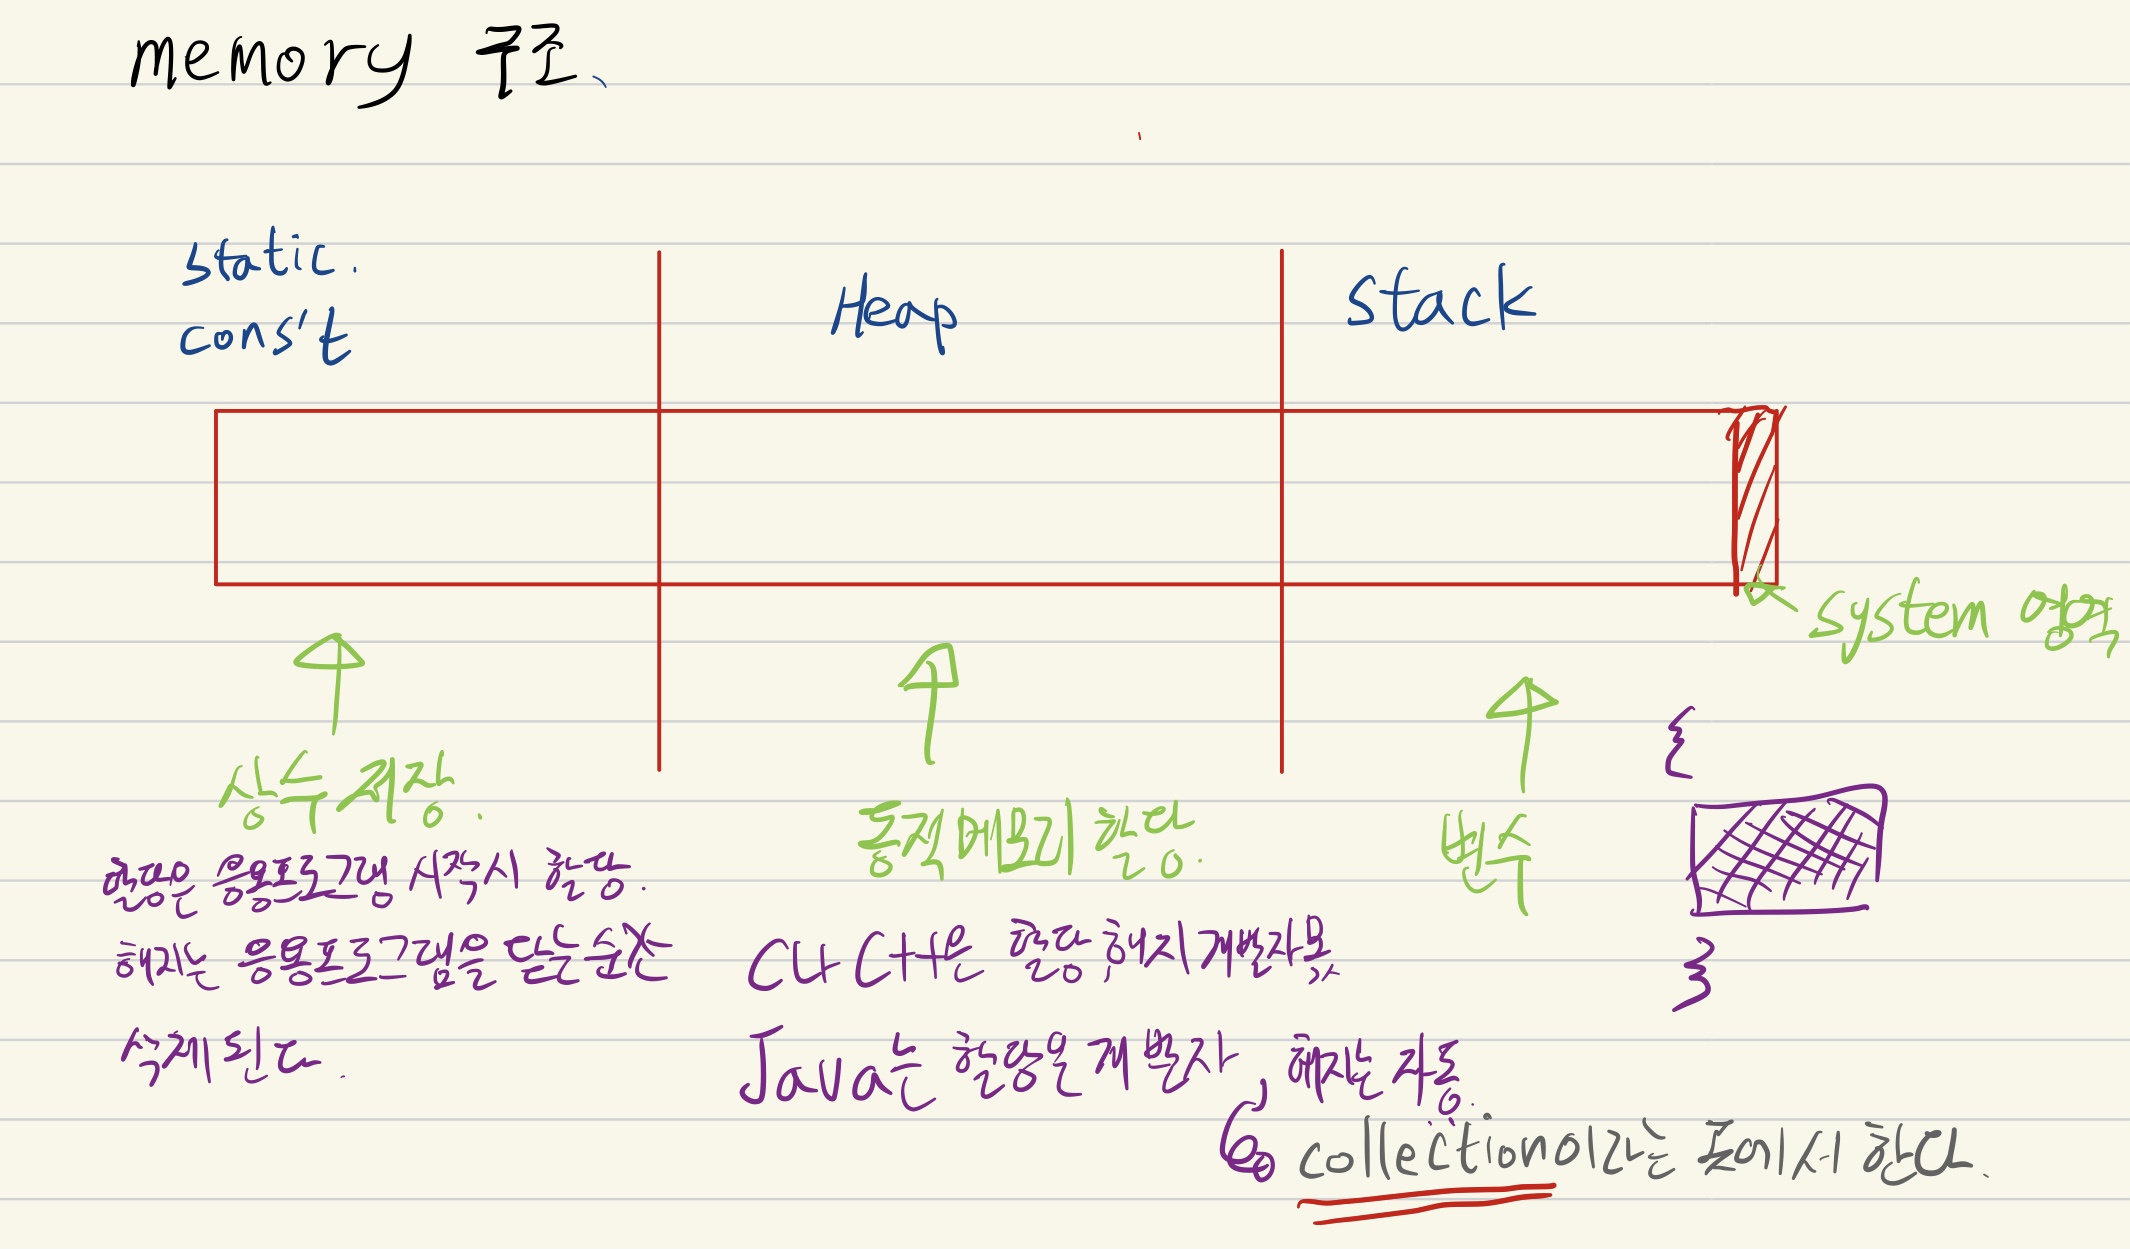 memory 구조
static.
const
Heap
stack
system 영역
상수 저장.
동적 메모리 할당.
변수
{
}
할당은 응용프로그램 시작시 할당.
해지는 응용프로그램을 닫는 순간
삭제된다.
C나 C++은 할당, 해지 개발자 몫
Java는 할당은 개발자, 해지는 자동.
collection이라는 곳에서 한다.